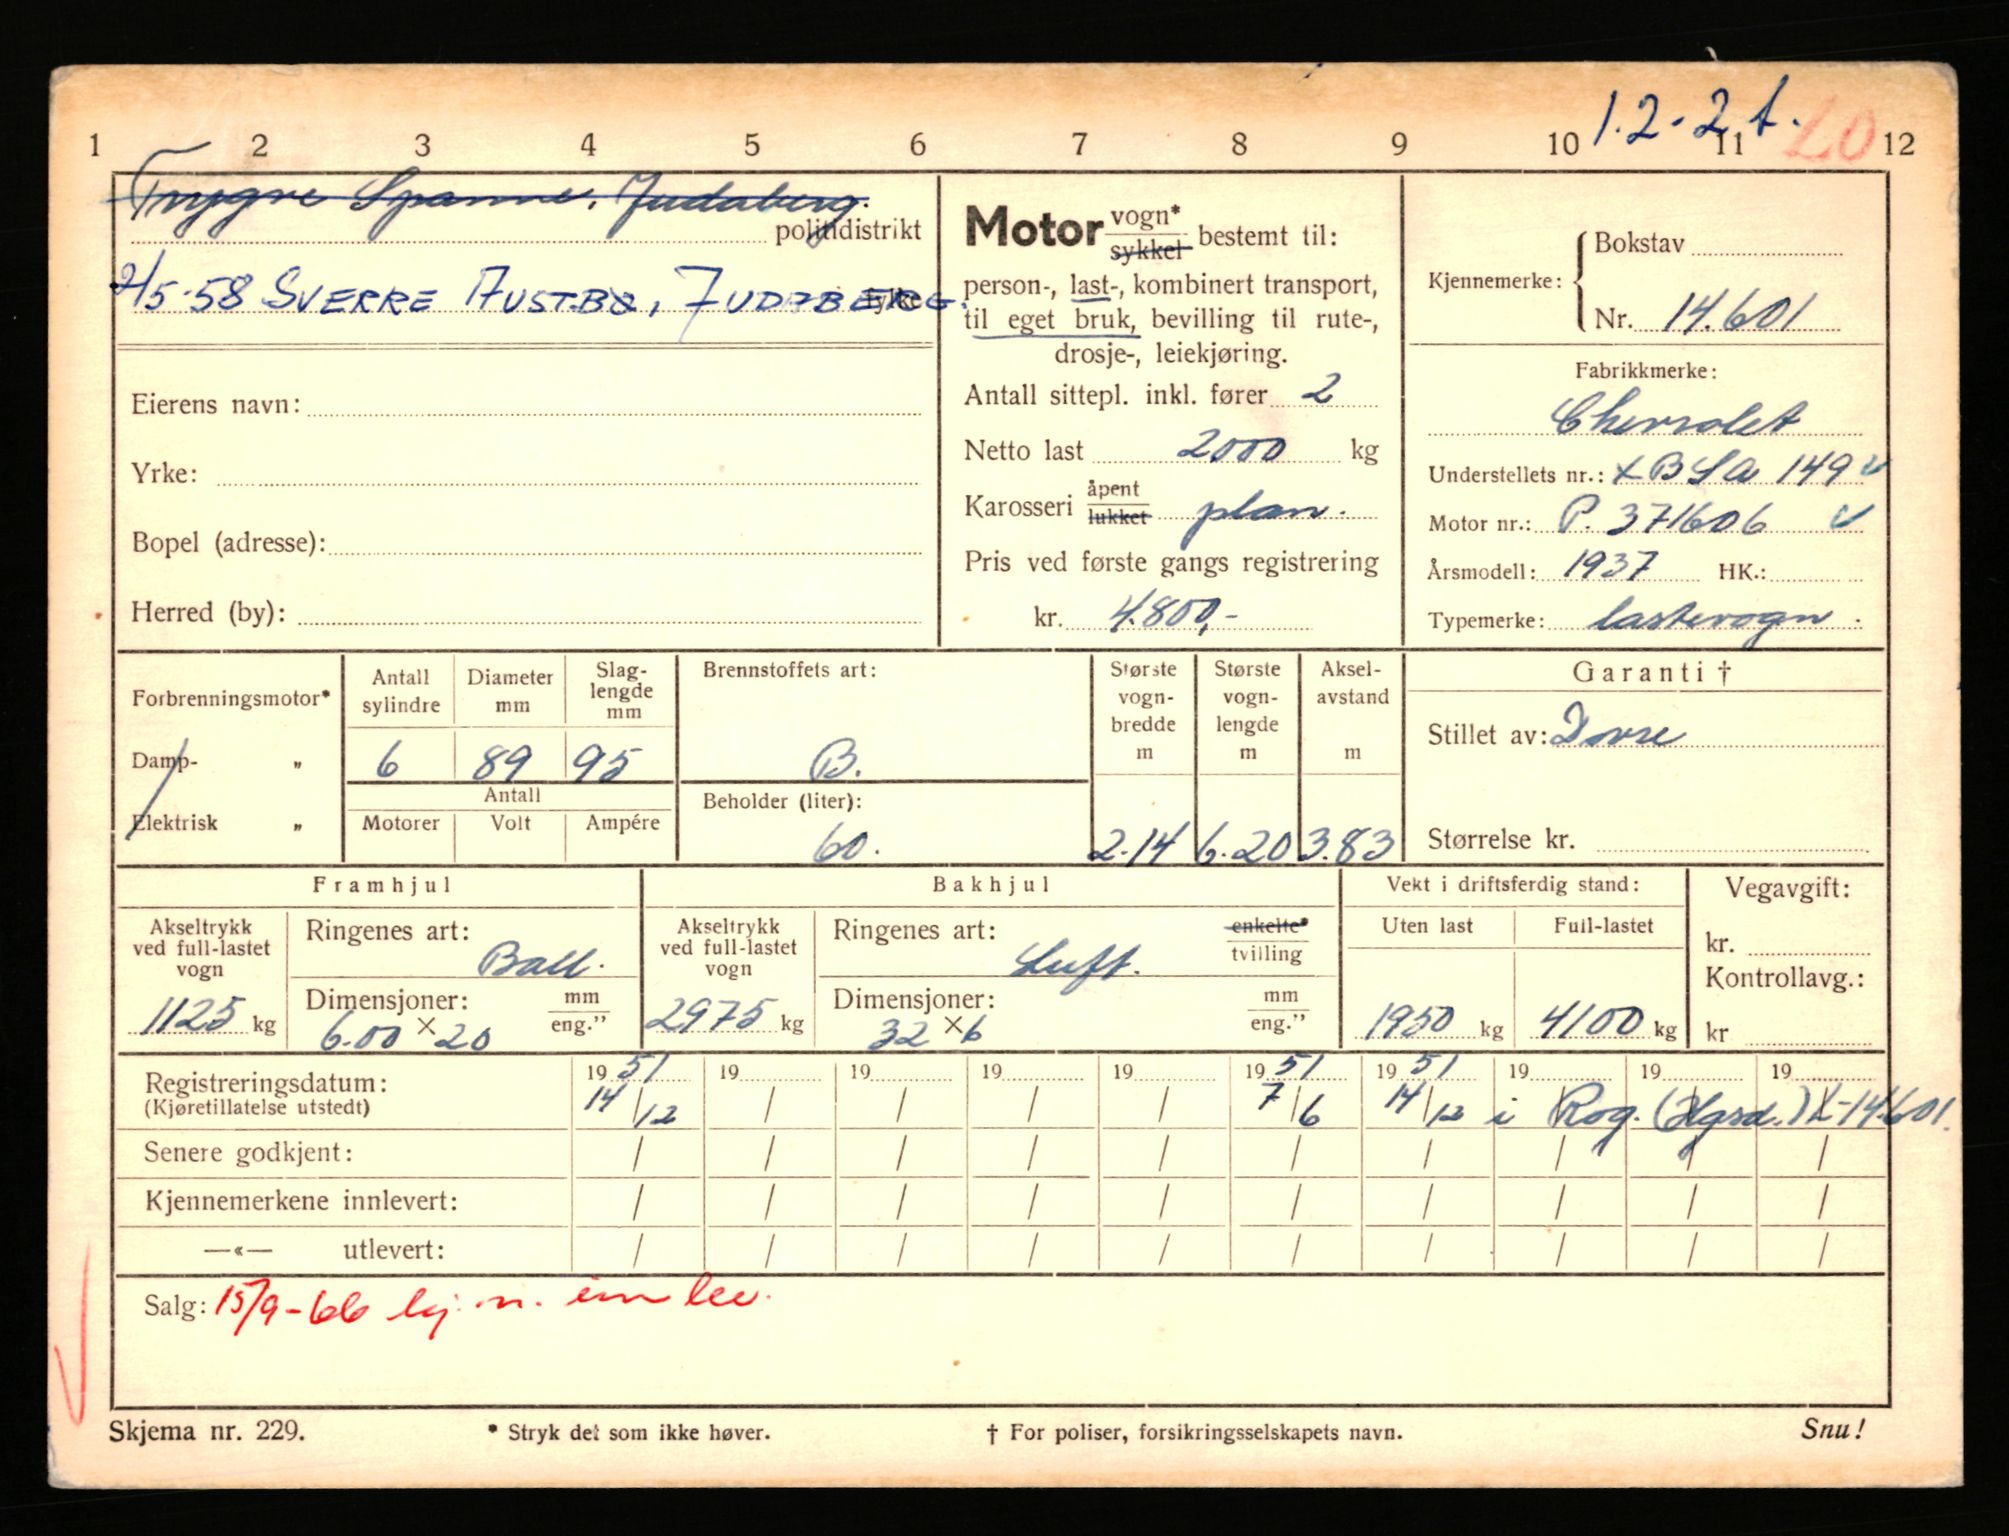 1.2-2t. 20
1 2 3 4 5 6 7 8 9 10 11 12
Trygve Spanne, Judaberg.
politidistrikt
2/5-58 SVERRE AUSTBØ, JUDABERG.
fylke
Eierens navn:
Yrke:
Bopel (adresse):
Herred (by):
Motor vogn* sykkel bestemt til:
person-, last-, kombinert transport,
til eget bruk, bevilling til rute-,
drosje-, leiekjøring.
Antall sittepl. inkl. fører 2
Netto last 2000 kg
Karosseri åpent lukket plan.
Pris ved første gangs registrering
kr. 4.800,-
Kjennemerke: Bokstav
Nr. 14.601
Fabrikkmerke:
Chevrolet
Understellets nr.: XBLA 149
Motor nr.: P. 371606
Årsmodell: 1937 HK.:
Typemerke: lastevogn.
Forbrenningsmotor*
Damp- „
Elektrisk „
Antall sylindre Diameter mm Slag-lengde mm
6 89 95
Antall
Motorer Volt Ampére
Brennstoffets art:
B.
Beholder (liter):
60.
Største vogn-bredde m Største vogn-lengde m Aksel-avstand m
2.14 6.20 3.83
Garanti †
Stillet av:
Størrelse kr.
Framhjul
Akseltrykk ved full-lastet vogn
1125 kg
Ringenes art: Ball.
Dimensjoner: mm eng."
6.00 × 20
Bakhjul
Akseltrykk ved full-lastet vogn
2975 kg
Ringenes art: Luft. enkelte* tvilling
Dimensjoner: mm eng."
32 × 6
Vekt i driftsferdig stand:
Uten last Full-lastet
1950 kg 4100 kg
Vegavgift:
kr.
Kontrollavg.:
kr
Registreringsdatum: 1951 19 19 19 19 1951 1951 19 19 19
(Kjøretillatelse utstedt) 14/12 / / / / 7/6 14/12 i Rog. (Hgsd.) L-14.601.
Senere godkjent: / / / / / / / / / /
Kjennemerkene innlevert: / / / / / / / / / /
—«— utlevert: / / / / / / / / / /
Salg: 15/9-66 kj. m. innlev.
Skjema nr. 229. * Stryk det som ikke høver. † For poliser, forsikringsselskapets navn. Snu!